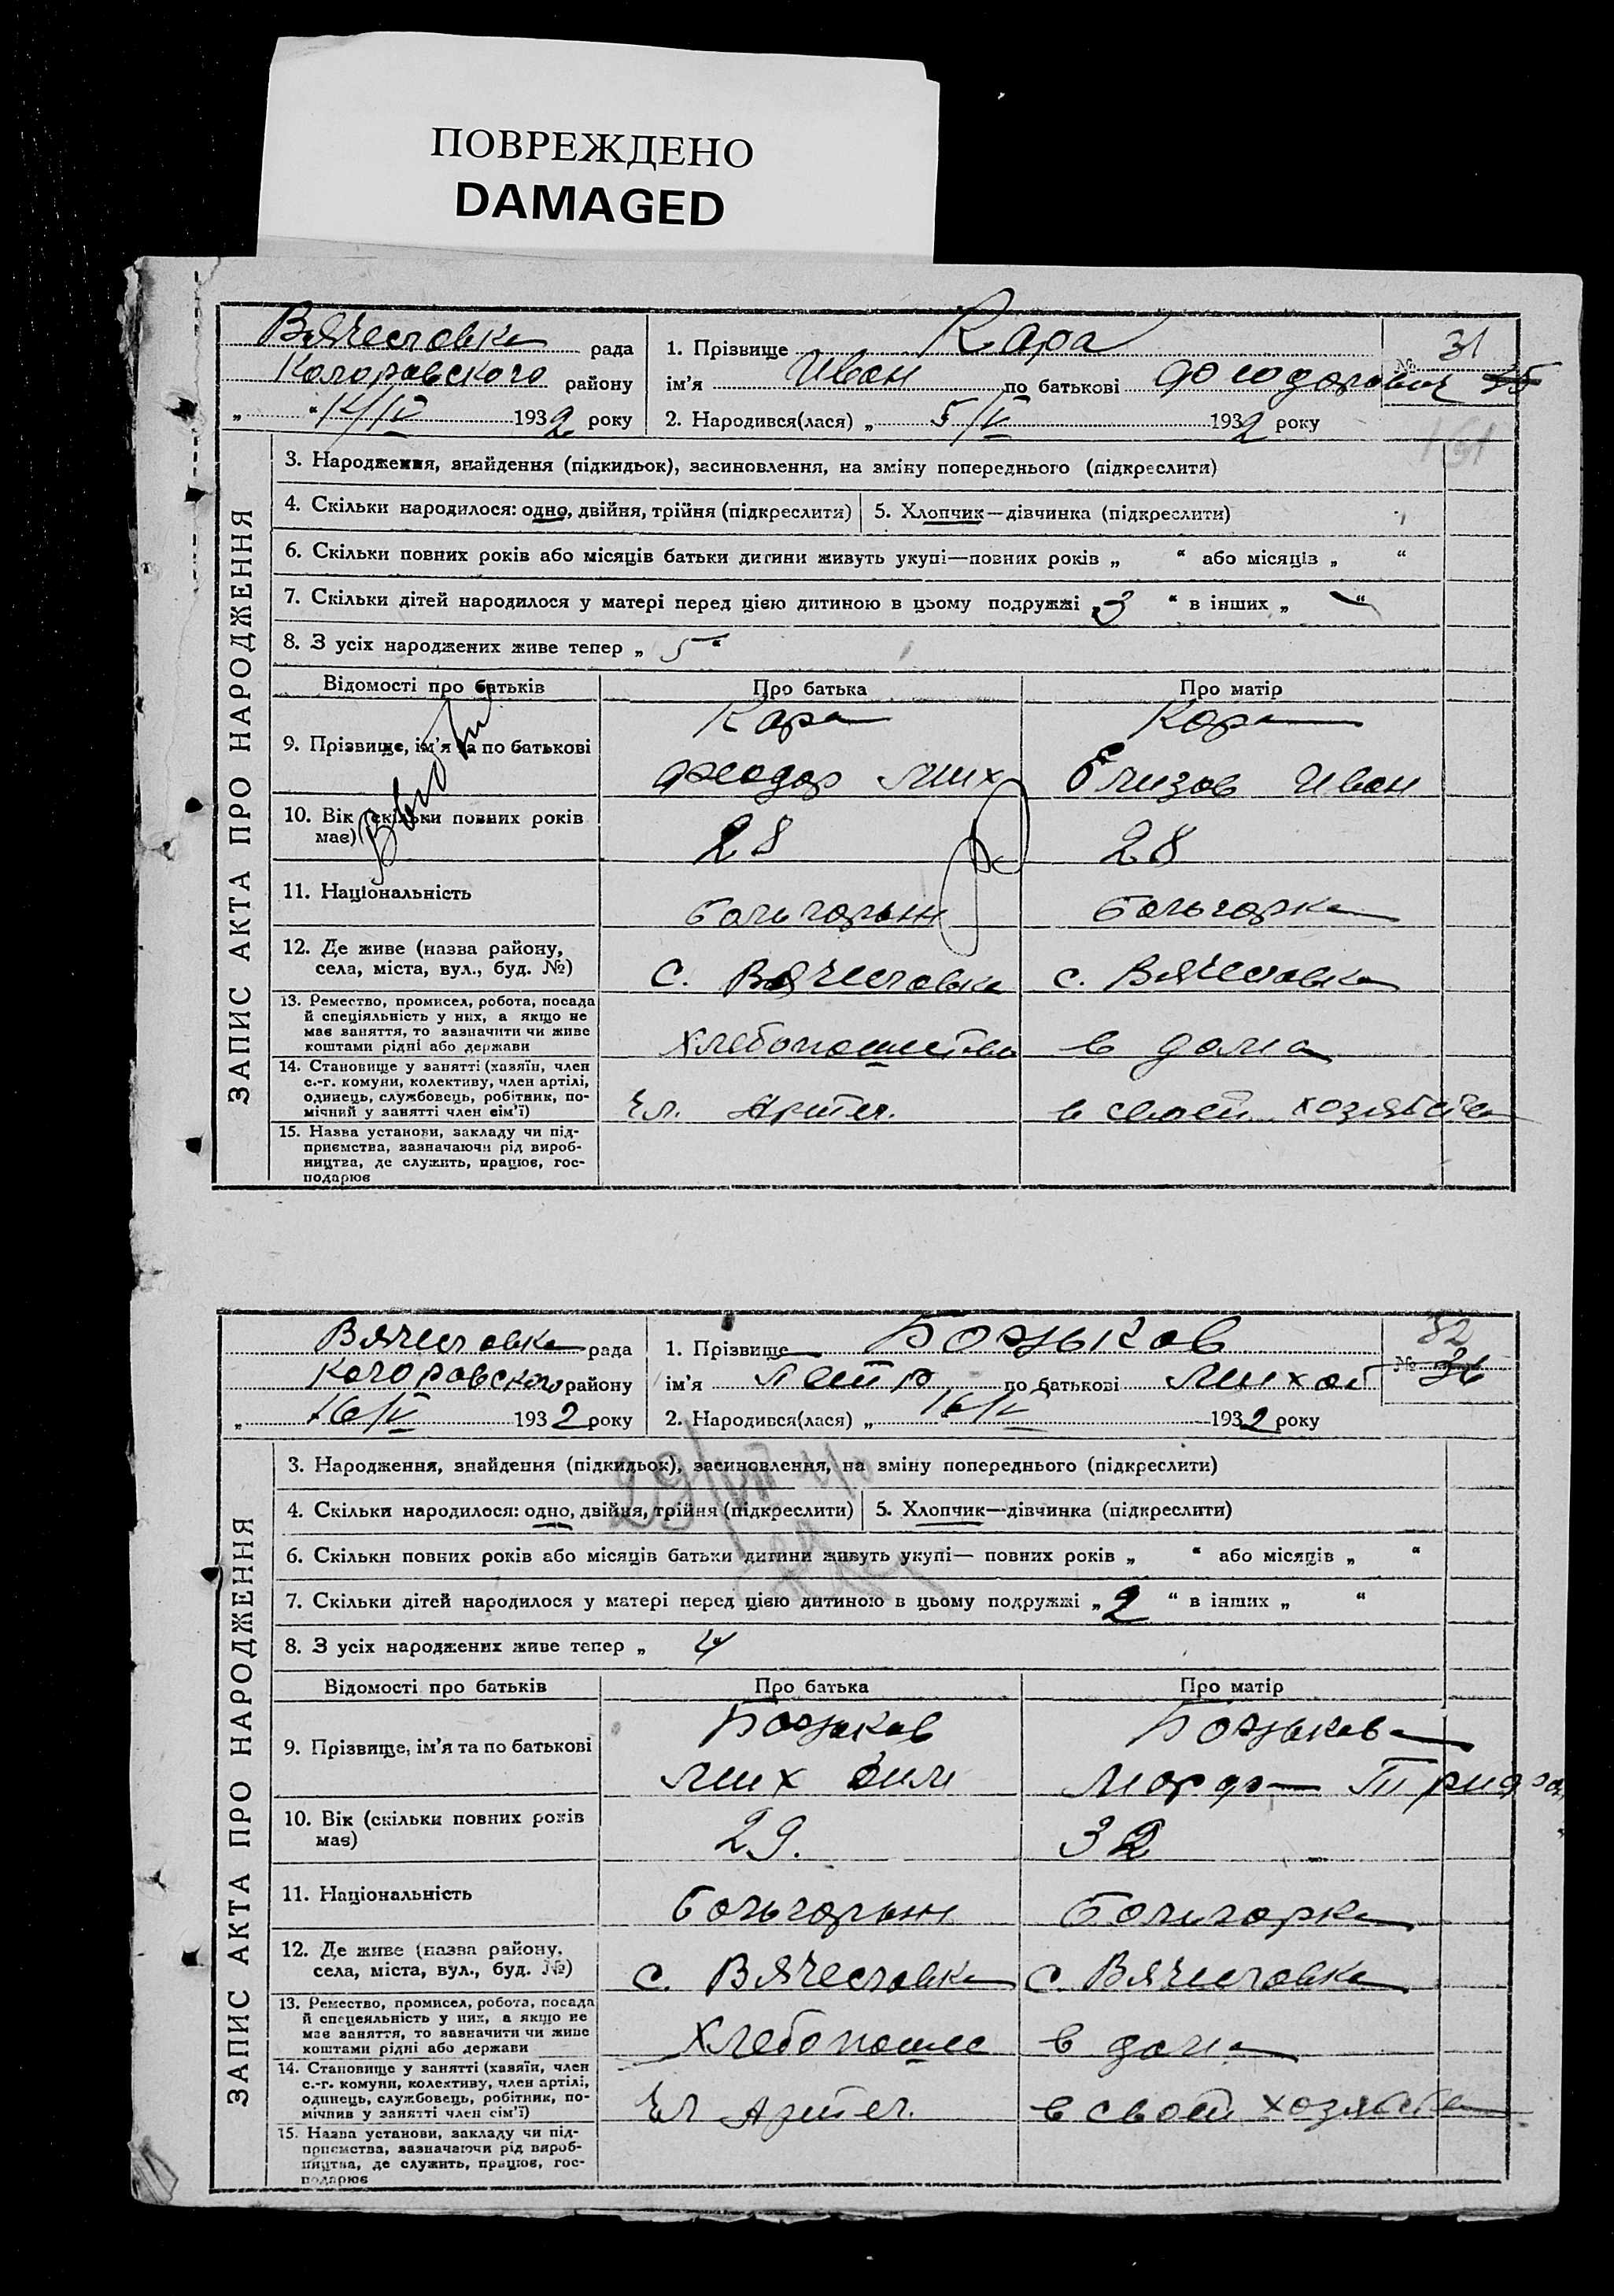 ПОВРЕЖДЕНО
DAMAGED
ЗАПИС АКТА ПРО НАРОДЖЕННЯ
Вячеславка рада
району
14/IV 1932 року
1. Прізвище Кара
ім'я Иван по батькові
№ 31
2. Народився(лася) „ 5/IV 1932 року
3. Народження, знайдення (підкидьок), засиновлення, на зміну попереднього (підкреслити)
4. Скільки народилося: одно, двійня, трійня (підкреслити)
5. Хлопчик—дівчинка (підкреслити)
6. Скільки повних років або місяців батьки дитини живуть укупі—повних років „ “ або місяців „ “
7. Скільки дітей народилося у матері перед цією дитиною в цьому подружжі „3 “ в інших „ — “
8. З усіх народжених живе тепер „ 5 “
Відомості про батьків Про батька Про матір
9. Прізвище, ім'я та по батькові
Кара Кара
Феодор Мих Елизав Иван
10. Вік (скільки повних років має) 28 28
11. Національність болгарын болгарка
12. Де живе (назва району, села, міста, вул., буд. №)
с. Вячеславка с. Вячеславка
13. Ремество, промисел, робота, посада
й спеціяльність у них, а якщо не
має заняття, то зазначити чи живе
коштами рідні або держави
в дома
14. Становище у занятті (хазяїн, член
с.-г. комуни, колективу, член артілі,
одинець, службовець, робітник, по-
мічний у занятті член сім'ї)
Чл. Артел. в своем хозяйстве
15. Назва установи, закладу чи під-
приємства, зазначаючи рід вироб-
ництва, де служить, працює, гос-
подарює
ЗАПИС АКТА ПРО НАРОДЖЕННЯ
Вячеславка рада
району
16/IV 1932 року
1. Прізвище Божыков
ім'я Петр по батькові Михай
№ 32
36
2. Народився(лася) „ 16/IV 1932 року
3. Народження, знайдення (підкидьок), засиновлення, на зміну попереднього (підкреслити)
4. Скільки народилося: одно, двійня, трійня (підкреслити)
5. Хлопчик—дівчинка (підкреслити)
6. Скільки повних років або місяців батьки дитини живуть укупі— повних років „ “ або місяців „ “
7. Скільки дітей народилося у матері перед цією дитиною в цьому подружжі „2 “ в інших „ “
8. З усіх народжених живе тепер „ 4
Відомості про батьків Про батька Про матір
9. Прізвище, ім'я та по батькові
Божыков Божыкова
Мих Дим
10. Вік (скільки повних років має) 29. 32
11. Національність болгарын болгарка
12. Де живе (назва району, села, міста, вул., буд. №)
с. Вячеславка с. Вячеславка
13. Ремество, промисел, робота, посада
й спецеяльність у них, а якщо не
має заняття, то зазначити чи живе
коштами рідні або держави
Хлебопаше в дома
14. Становище у занятті (хазяїн, член
с.-г. комуни, колективу, член артілі,
одинець, службовець, робітник, по-
мічнив у занятті член сім'ї)
Чл Артел. в своей хозяйстве
15. Назва установи, закладу чи під-
приємства, зазначаючи рід вироб-
ництва, де служить, працює, гос-
подарює